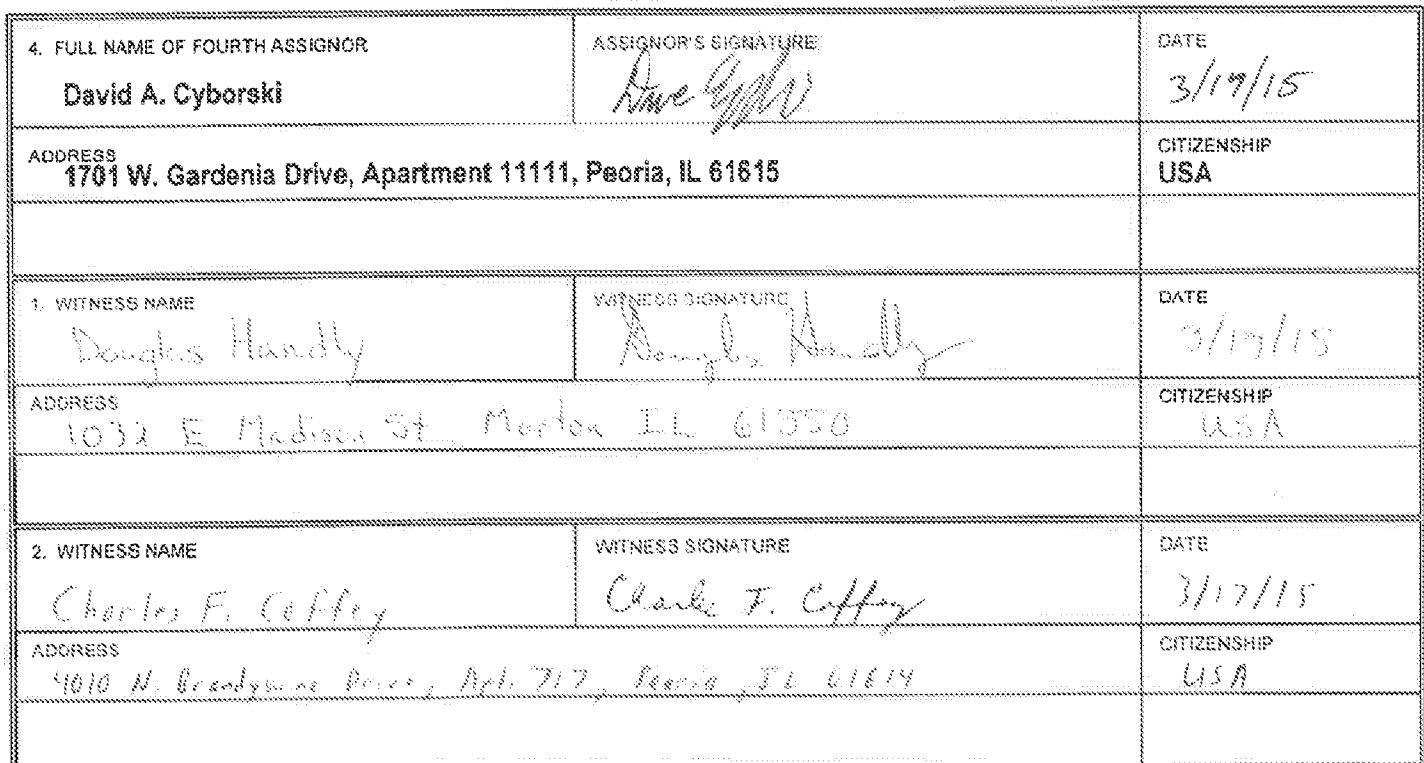 4. FULL NAME OF FOURTH ASSIGNOR
David A. Cyborski
ASSIGNOR'S SIGNATURE
Dave
DATE
3/17/15
ADDRESS
1701 W. Gardenia Drive, Apartment 11111, Peoria, IL 61615
CITIZENSHIP
USA
1. WITNESS NAME
Douglas Handly
WITNESS SIGNATURE
Douglas Handly
DATE
3/17/15
ADDRESS
1032 E Madison St Morton IL 61550
CITIZENSHIP
USA
2. WITNESS NAME
Charles F. Coffey
WITNESS SIGNATURE
Charles F. Coffey
DATE
3/17/15
ADDRESS
4010 N. Brandywine Drive, Apt. 717, Peoria, IL 61614
CITIZENSHIP
USA